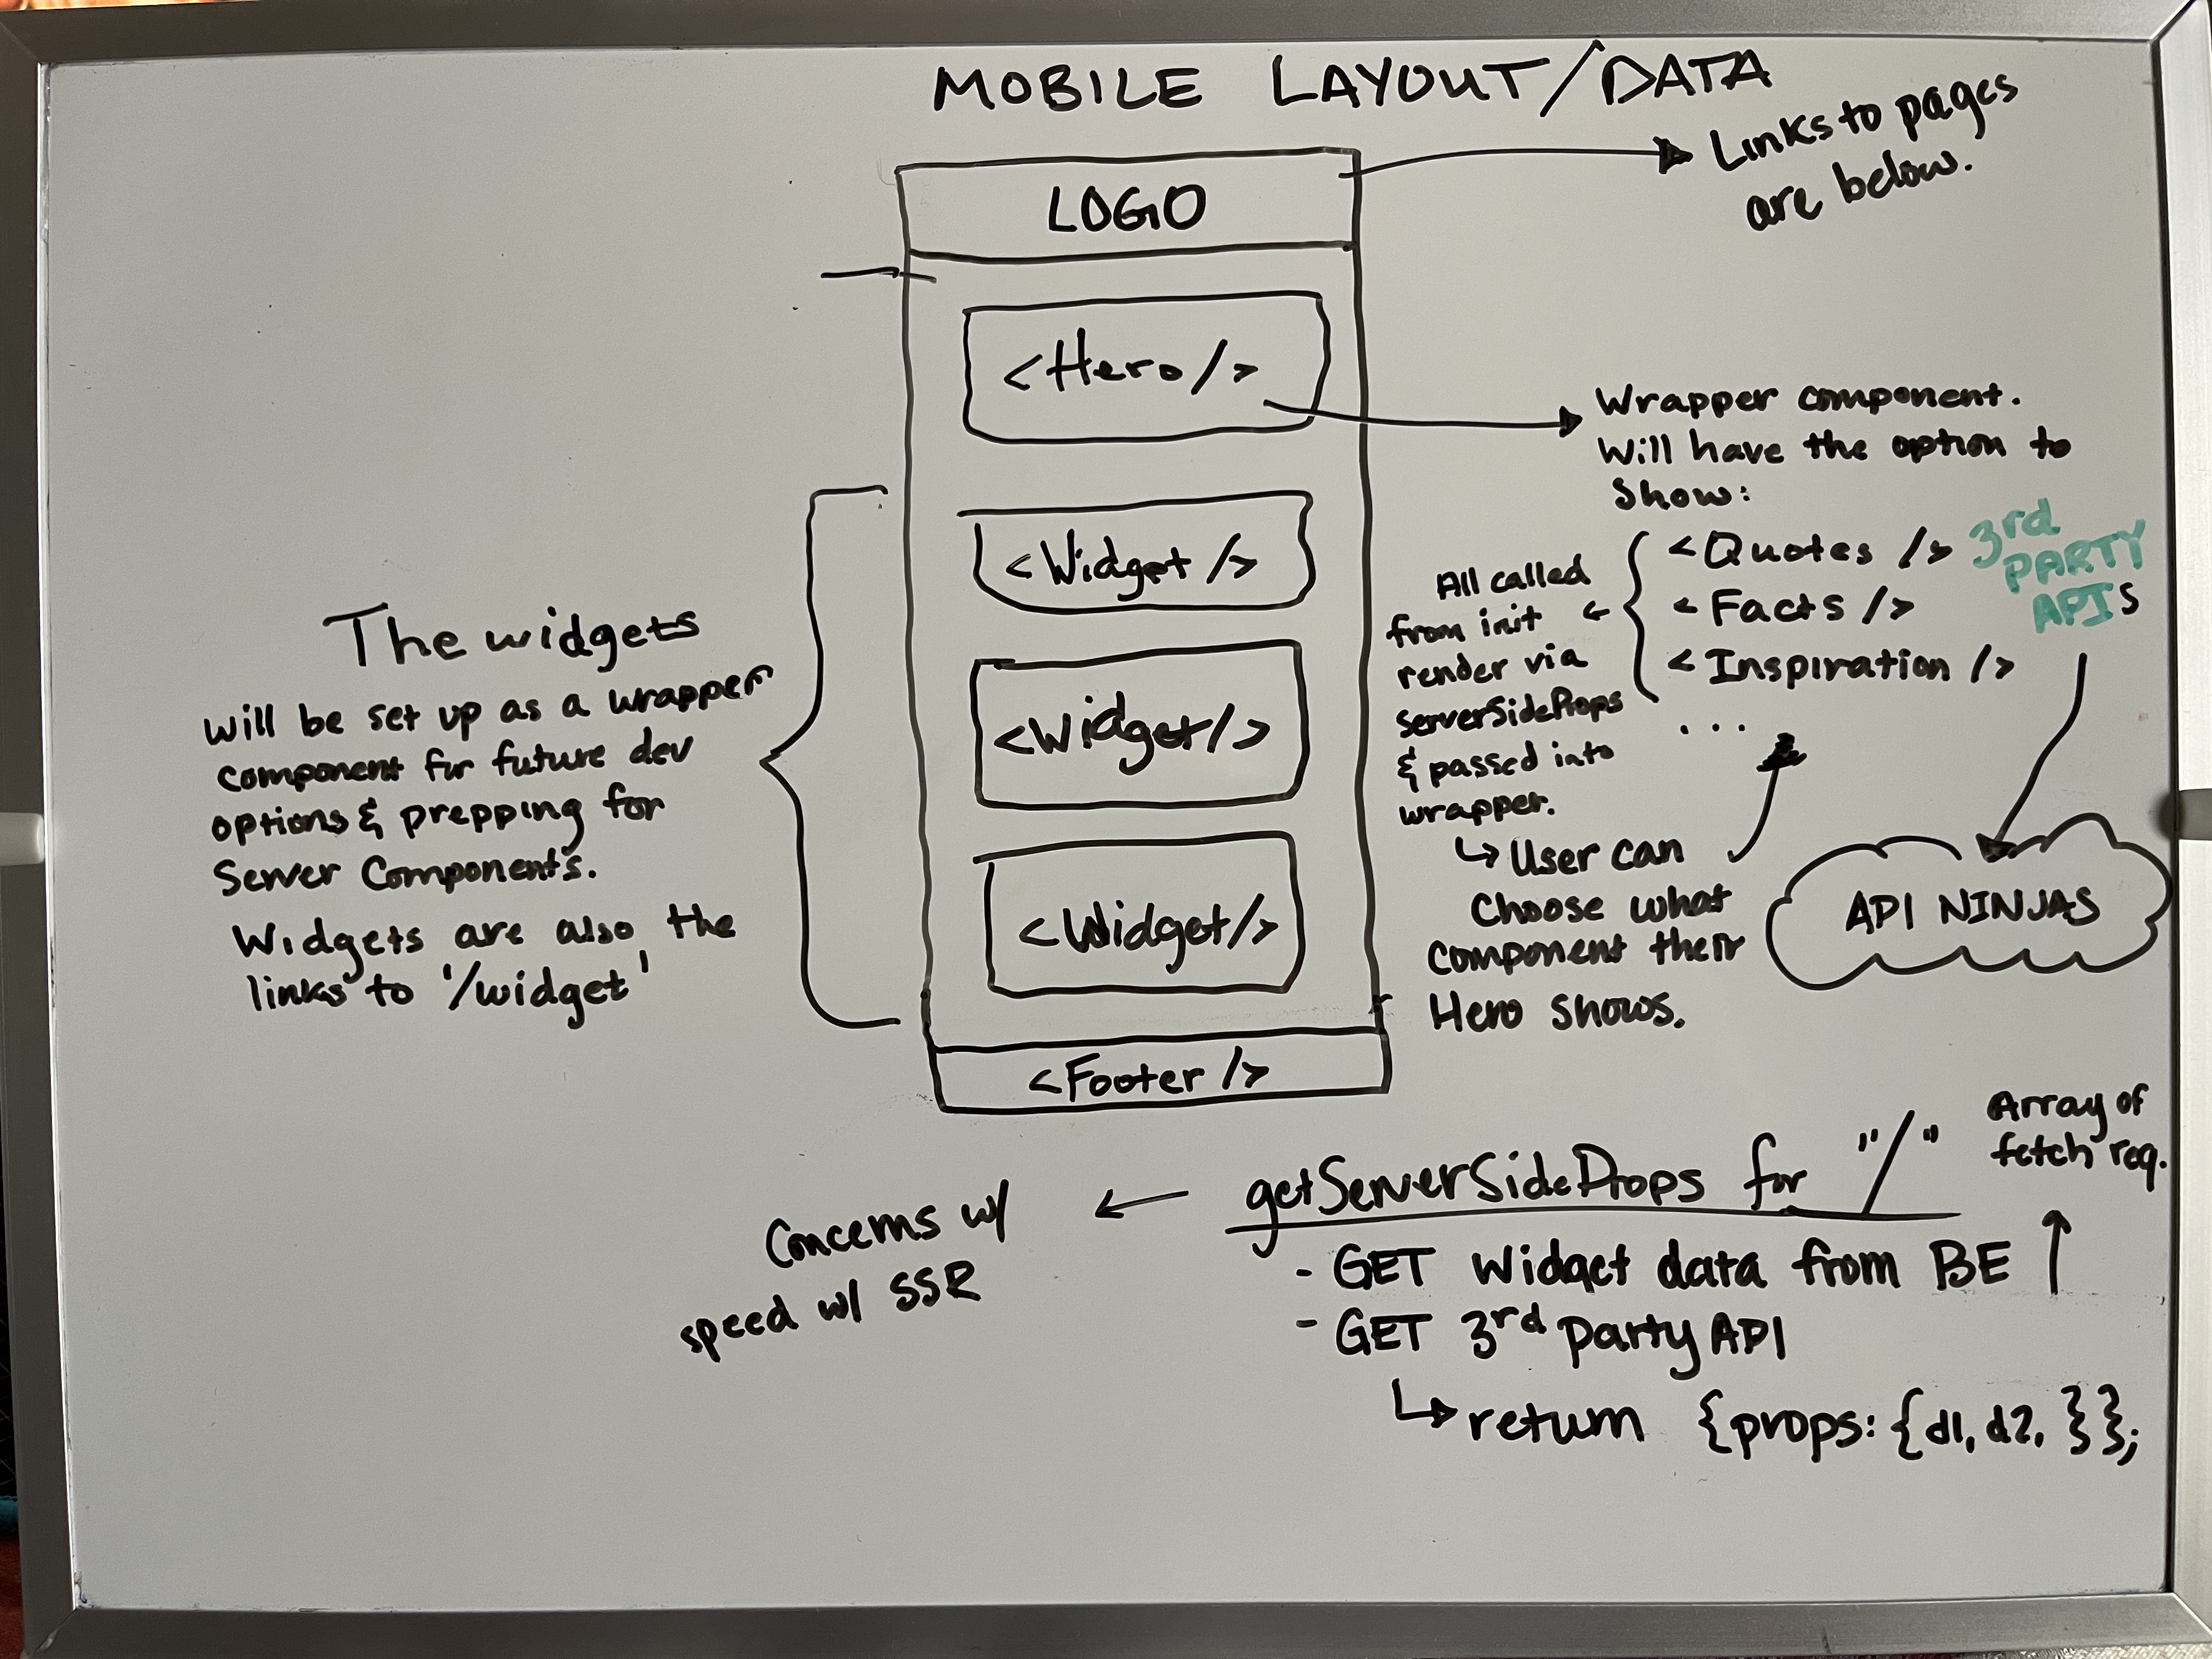 MOBILE LAYOUT/DATA
Links to pages
are below.
LOGO
<Hero/>
Wrapper component.
Will have the option to
Show:
<Quotes />
<Facts />
<Inspiration />
...
3rd
PARTY
APIs
All called
from init
render via
ServerSideProps
& passed into
wrapper.
↳ User can
Choose what
component their
Hero shows.
API NINJAS
<Widget />
<Widget/>
<Widget/>
The widgets
will be set up as a wrapper
component for future dev
options & prepping for
Server Components.
Widgets are also the
links to '/widget'
<Footer />
getServerSideProps for "/"
Array of
fetch req.
- GET Widget data from BE
- GET 3rd party API
↳ return {props: {d1, d2, }};
Concerns w/
speed w/ SSR